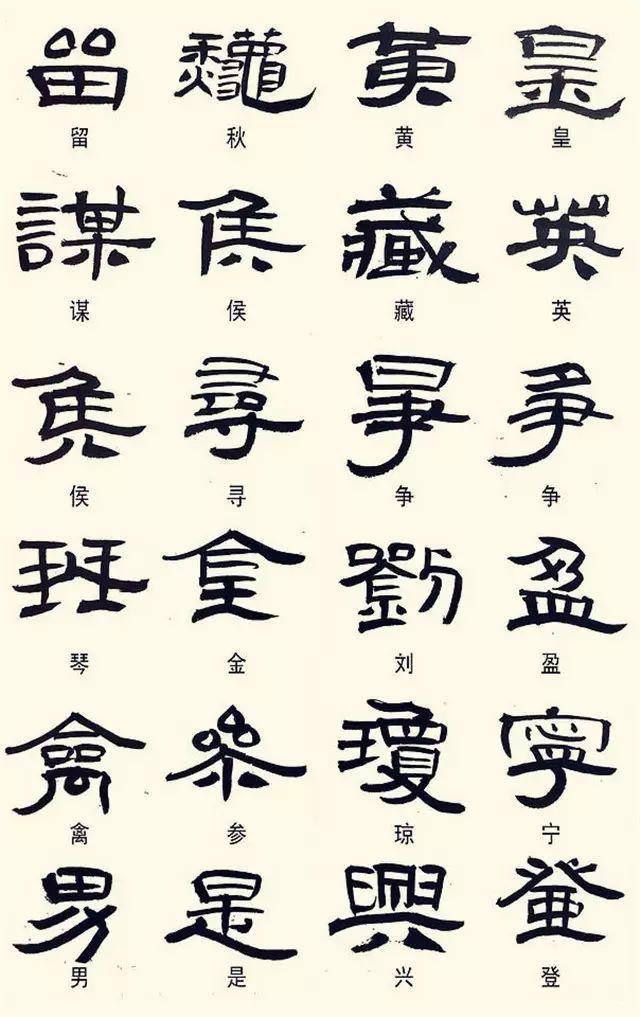 留 龝 黃 皇
留 秋 黄 皇
謀 侯 藏 英
谋 侯 藏 英
侯 尋 爭 爭
侯 寻 争 争
珡 金 劉 盈
琴 金 刘 盈
禽 参 瓊 寧
禽 参 琼 宁
男 是 興 登
男 是 兴 登